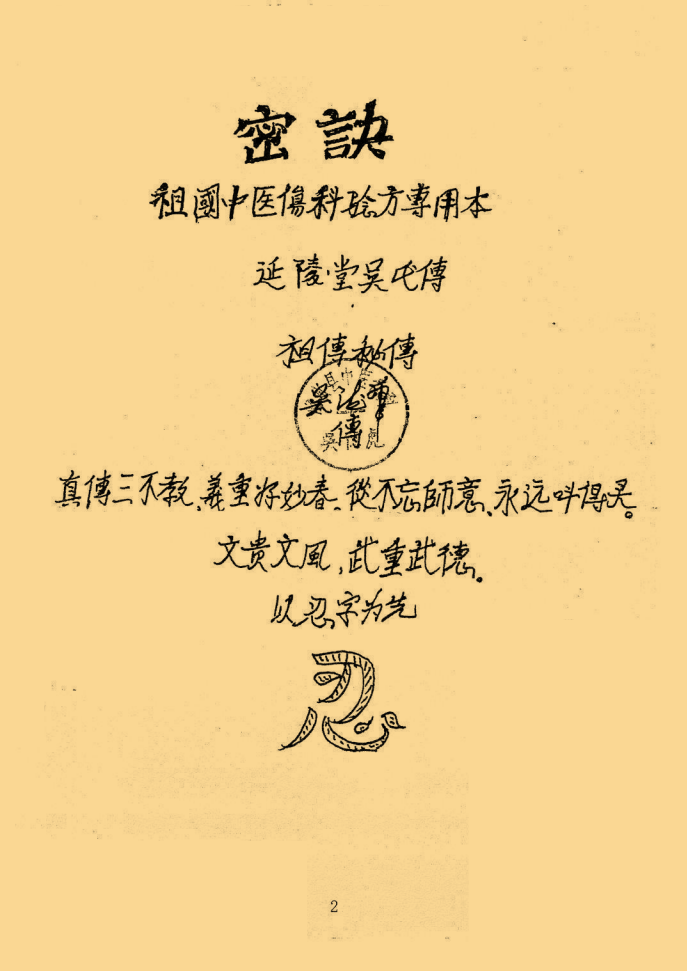 密訣
祖國中医傷科验方專用本
延陵堂吴屯傳
祖傳秘傳
县中医
吴
傳
吴 彪
真傳三不教、義重好妙春、從不忘師意、永远叫得灵。
文贵文風,武重武德。
以忍字为先
忍
2